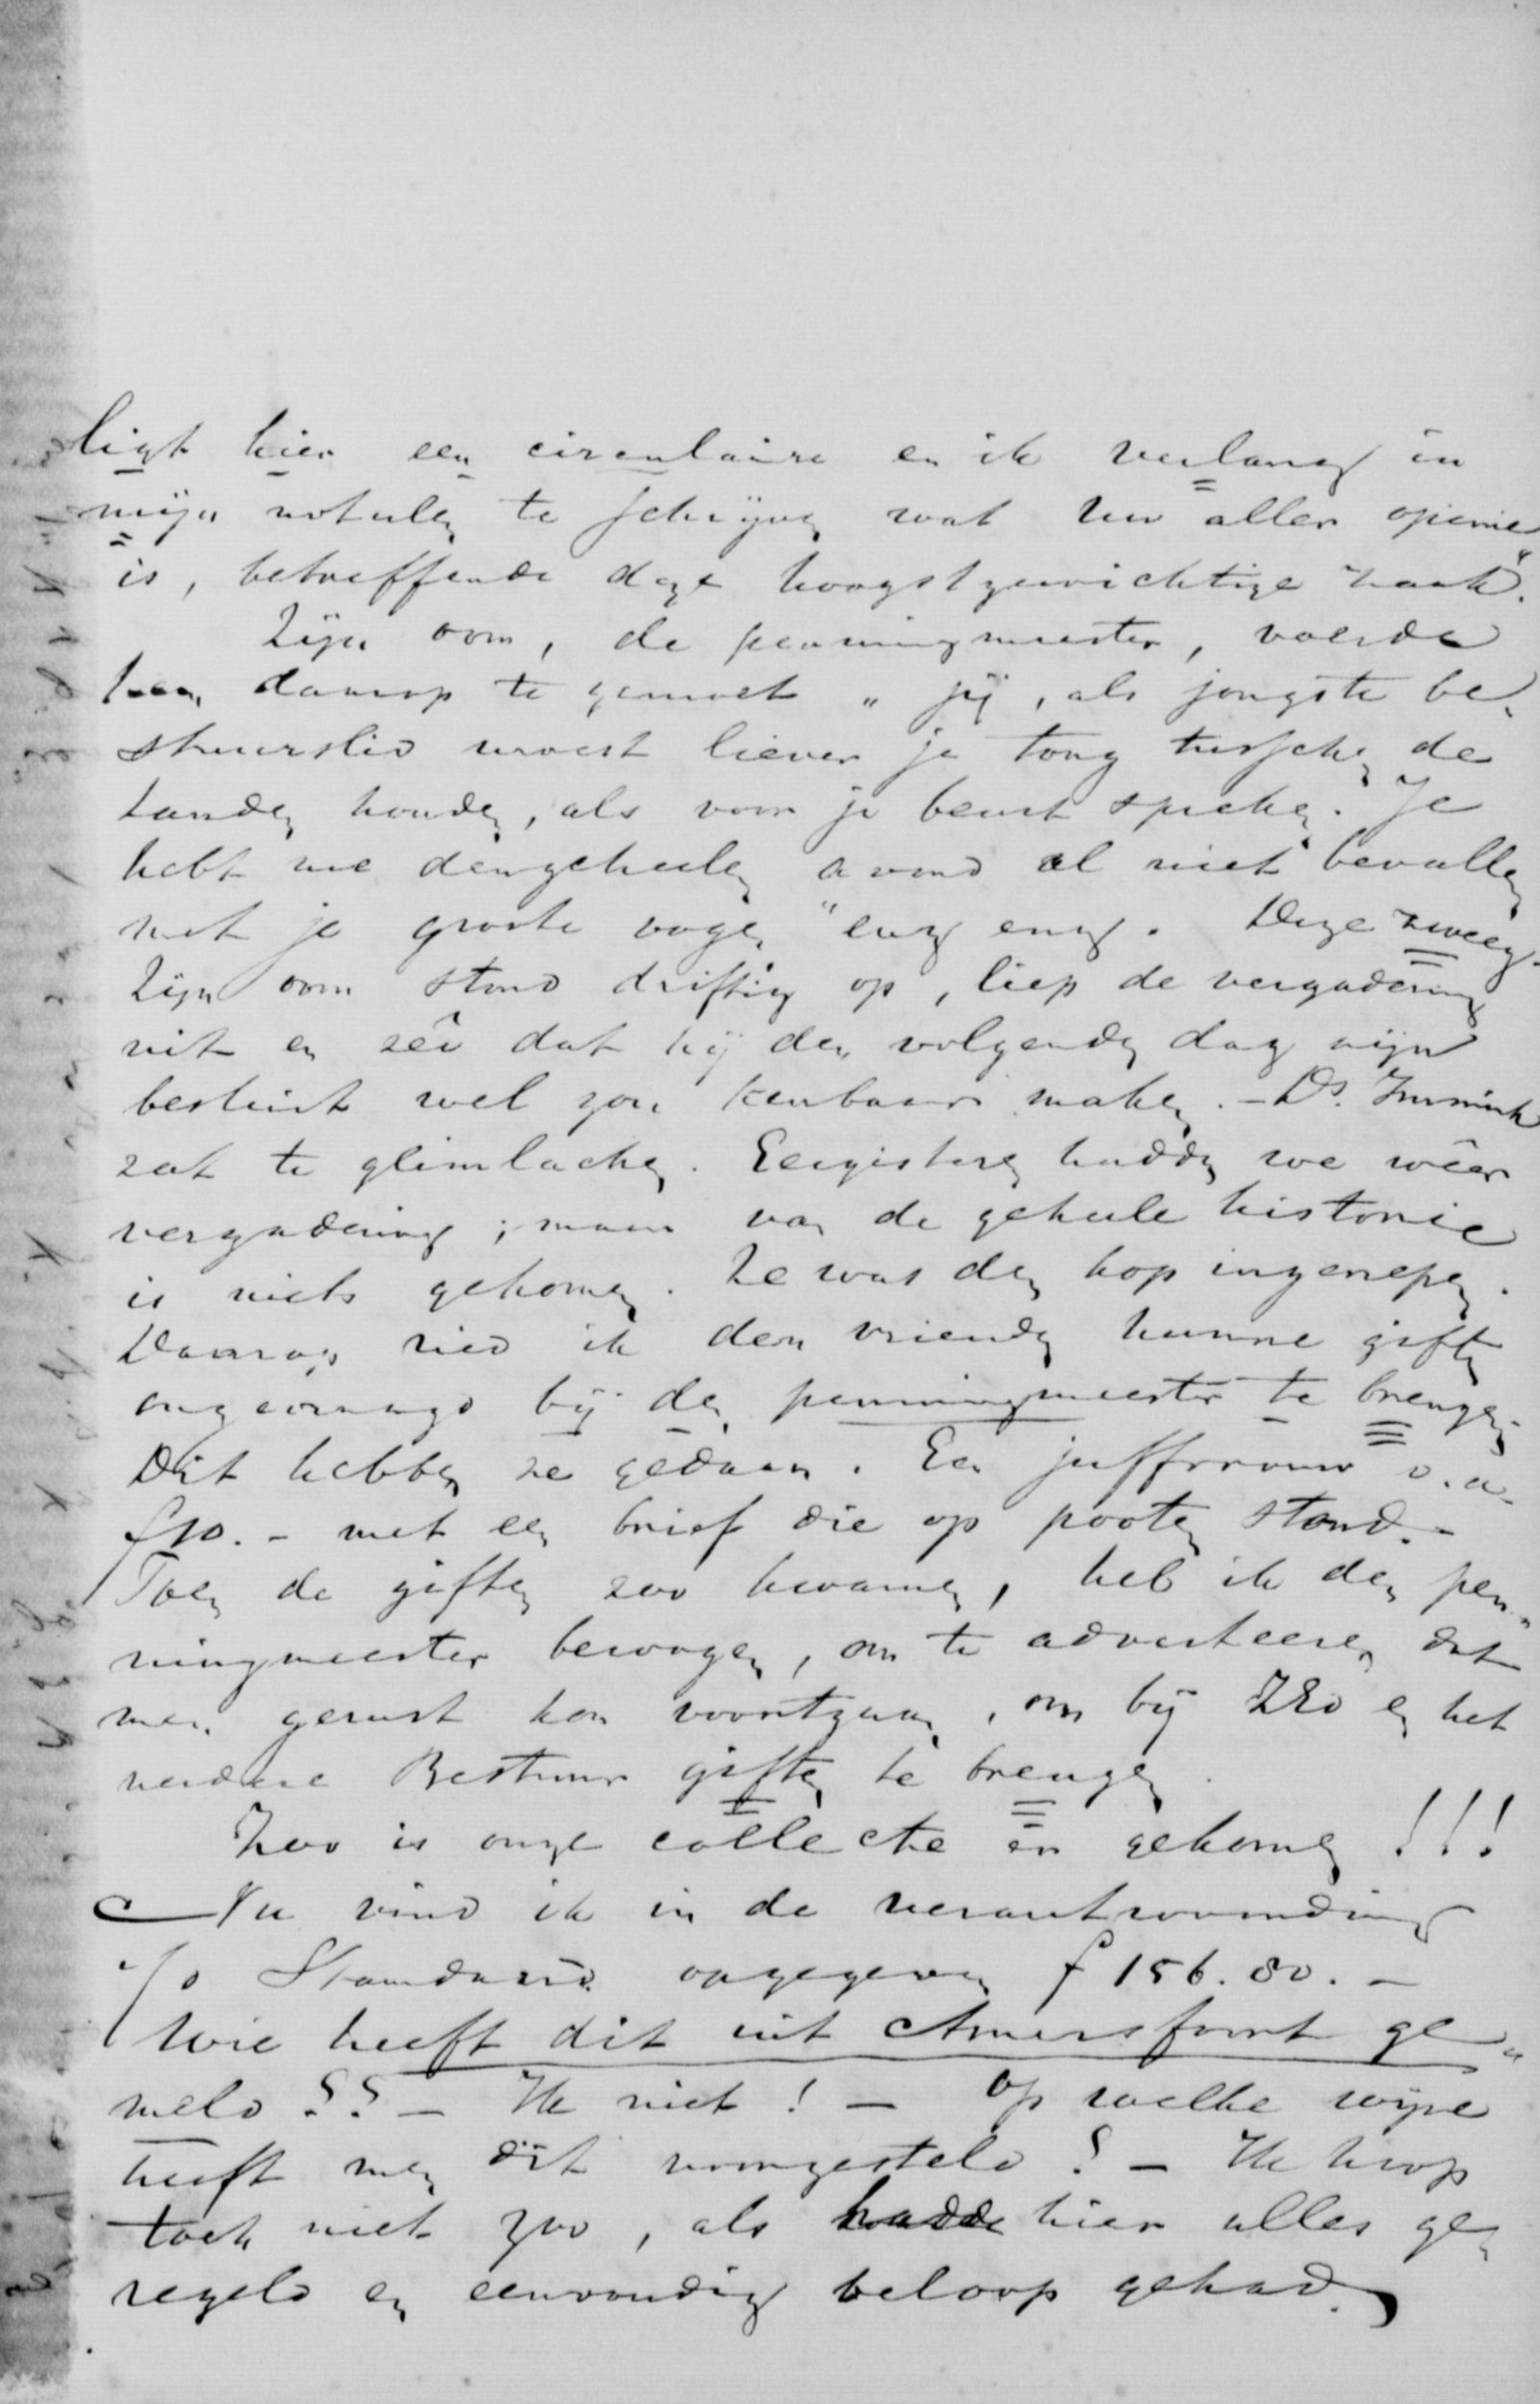 ligt hier een circulaire en ik verlang in
mijn notulen te schrijven wat Uw aller opinie
is, betreffende deze hoogstgewichtige zaak".
Zijn oom, de penningmeester, voerde
hem daarop te gemoet „jij, als jongste be-
stuurslid moest liever je tong tusschen de
tanden houden, als voor je beurt spreken. Je
hebt me den geheelen avond al niet bevallen
met je groote oogen" enz enz. Deze zweeg.
Zijn oom stond driftig op, liep de vergadering
uit en zei dat hij den volgenden dag zijn
besluit wel zou kenbaar maken. – Ds.
zat te glimlachen. Eergisteren hadden we wêer
vergadering; maar van de geheele historie
is niets gekomen. Ze was den kop ingenepen.
Daarop ried ik den vrienden hunne giften
ongevraagd bij den penningmeester te brengen.
Dit hebben ze gedaan. Een juffrouw o.a.
f10.- met een brief die op pooten stond. –
Toen de giften zoo kwamen, heb ik den pen-
ningmeester bewogen, om te adverteeren dat
men gerust kon voortgaan, om bij ZEd en het
verdere Bestuur giften te brengen.
Zoo is onze collecte er gekomen!!!
Nu vind ik in de verantwoording
v/d Standaard opgegeven f 156.80. –
Wie heeft dit uit Amersfoort ge-
meld?? – Ik niet! – Op welke wijze
heeft men dit voorgesteld? – Ik hoop
toch niet zoo, als hadde hier alles ge-
regeld en eenvoudig beloop gehad.